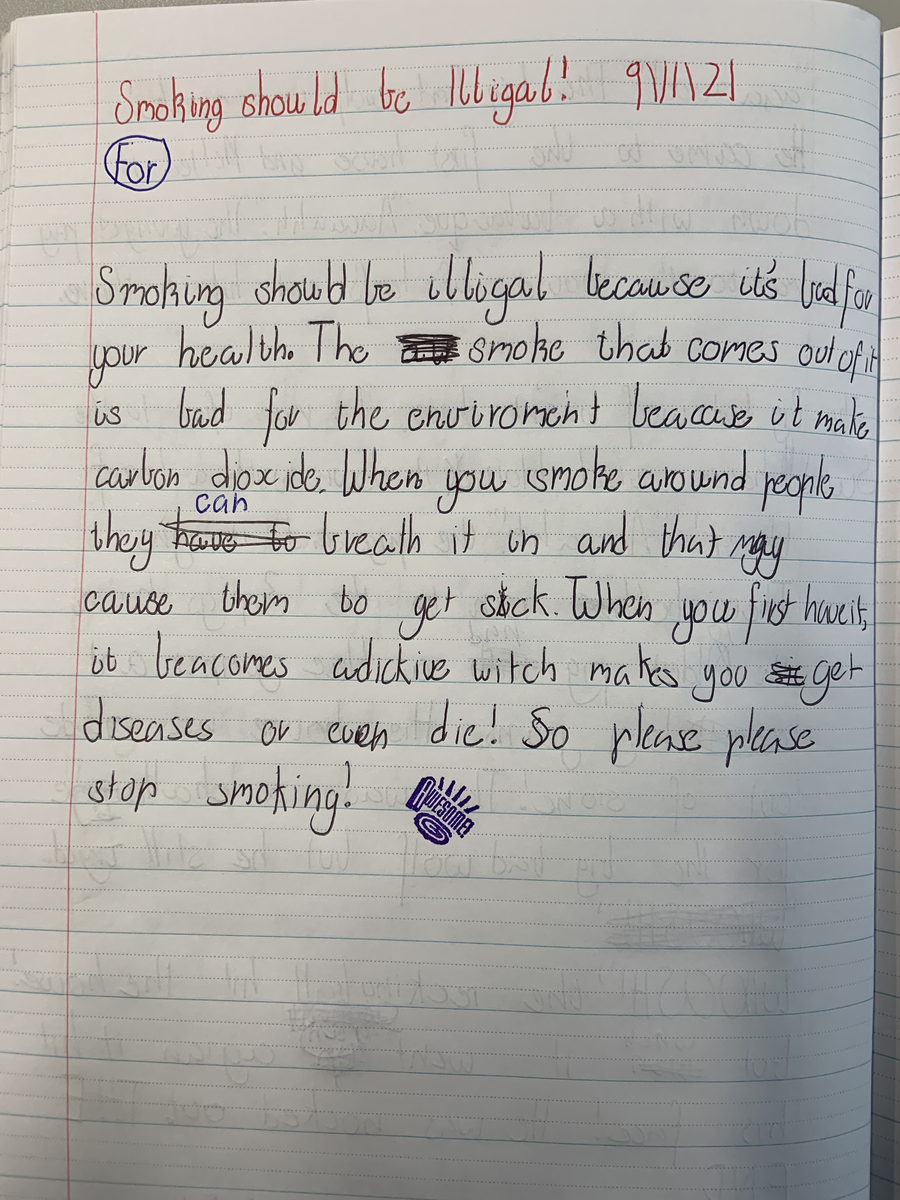 Smoking should be Illigal! 9\11\21
For
Smoking should be illigal because it's bad for
your health. The smoke that comes out of it
is bad for the enviroment beacause it make
carbon dioxcide. When you smoke around people
can
they have to breath it in and that may
cause them to get sick. When you first have it,
it beacomes adickive witch makes you get
diseases or even die! So please please
stop smoking!
AWESOME!